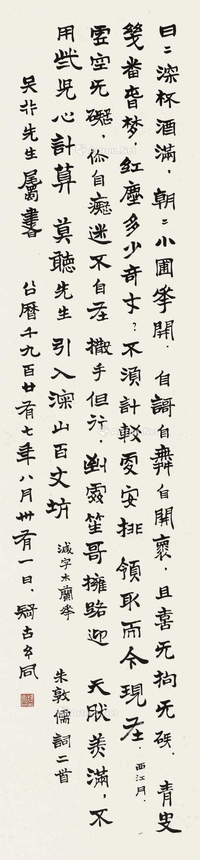 日〻深杯酒滿,朝〻小圃華開.自謌自舞自開褱,且喜无拘无礙.青史
幾番春夢,紅塵多少奇才?不須計較叓安排,領取而今現在.西江月.
虛空无礙,你自癡迷不自在.撒手但行,到處笙哥擁路迎.天肰美滿,不
用些兒心計算.莫聽先生,引入深山百丈坑 減字木蘭華 朱敦儒詞二首
吳非先生屬書 公曆千九百廿有七年八月卅有一日,疑古玄同